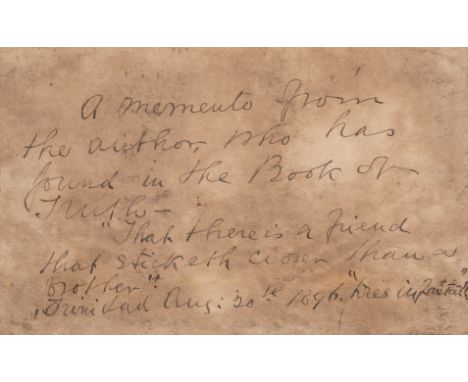 A memento from
the author, who has
found in the Book of
Truth—
"That there is a friend
that sticketh closer than a
brother".
Trinidad Aug: 20th 1896.